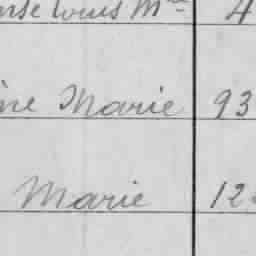 nse Louis Mle 4
ine Marie 93
Marie 12